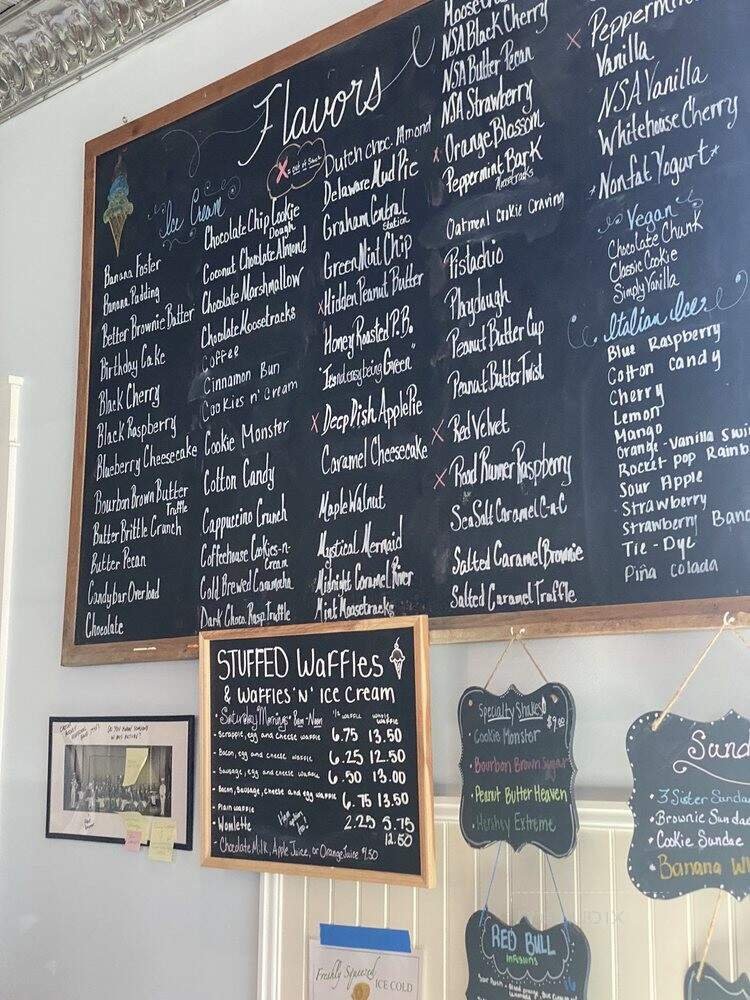 Flavors
X = out of Stock
Ice Cream
Banana Foster
Banana Pudding
Better Brownie Batter
Birthday Cake
Black Cherry
Black Raspberry
Blueberry Cheesecake
Bourbon Brown Butter
Truffle
Butter Brittle Crunch
Butter Pecan
Candybar Overload
Chocolate
Chocolate Chip Cookie
Dough
Coconut Chocolate Almond
Chocolate Marshmallow
Chocolate Moosetracks
Coffee
Cinnamon Bun
Cookies n' Cream
Cookie Monster
Cotton Candy
Cappuccino Crunch
Coffeehouse Cookies-n-
Cream
Cold Brewed
Dark Choco. Rasp. Truffle
Dutch Choc. Almond
Delaware Mud Pie
Graham Central
Station
Green Mint Chip
X Hidden Peanut Butter
Honey Roasted P.B.
"Isnd easy being Green"
X Deep Dish Apple Pie
Caramel Cheesecake
Maple Walnut
Mystical Mermaid
Midnight Caramel River
Mint Moosetracks
NSA Black Cherry
NSA Butter Pecan
NSA Strawberry
x Orange Blossom
Peppermint Bark
Moosetracks
Oatmeal Cookie Craving
Pistachio
Playdough
Peanut Butter Cup
Peanut Butter Twist
X Red Velvet
X Road Runner Raspberry
Sea Salt Caramel C-n-C
Salted Caramel Brownie
Salted Caramel Truffle
X
Vanilla
NSA Vanilla
Whitehouse Cherry
*Nonfat Yogurt*
Vegan
Chocolate Chunk
Classic Cookie
Simply Vanilla
Italian Ices
Blue Raspberry
Cotton Candy
Cherry
Lemon
Mango
Orange-Vanilla
Rocket pop
Sour Apple
Strawberry
Strawberry
Tie-Dye
Piña Colada
STUFFED Waffles
& Waffles 'N' Ice Cream
* Saturday Mornings* 8am-Noon 1/2 waffle whole waffle
- Scrapple, egg and cheese waffle 6.75 13.50
- Bacon, egg and cheese waffle 6.25 12.50
- Sausage, egg and cheese waffle 6.50 13.00
- Bacon, Sausage, cheese and egg waffle 6.75 13.50
- Plain waffle 2.25 5.75
- Womlette 12.50
- Chocolate Milk, Apple Juice, or Orange Juice
Specialty Shakes
$9.00
• Cookie Monster
• Bourbon Brown Sugar
• Peanut Butter Heaven
• Hershey Extreme
• 3 Sister
• Brownie
• Cookie Sundae
• Banana
RED BULL
Infusions
Freshly Squeezed
ICE COLD